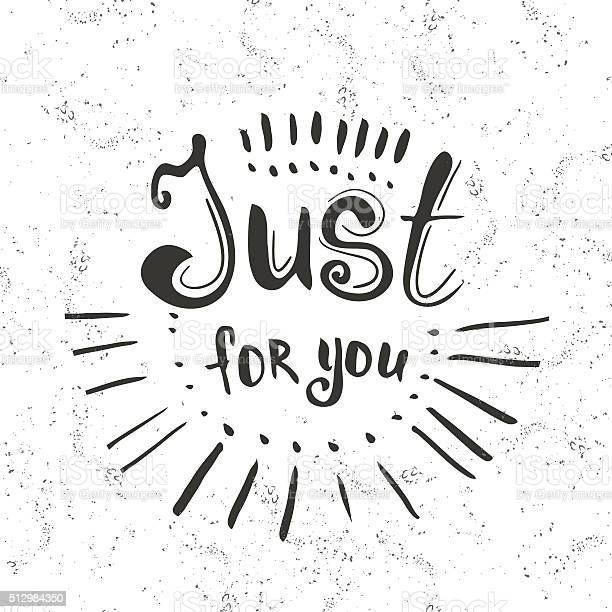 Just
for you
iStock
by Getty Images™
512984350